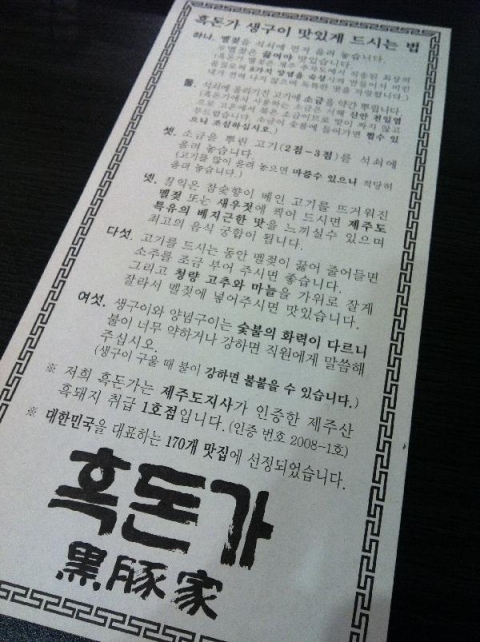 흑돈가 생구이 맛있게 드시는 법
하나. 멜젓을 석쇠에 먼저 올려 놓습니다.
둘. 석쇠에 올려진 고기에 소금을 약간 뿌립니다.
으니 조심하십시오.)
셋. 소금을 뿌린 고기(2점-3점)를 석쇠에
올려 놓습니다.
(고기를 많이 올려 놓으면 마를수 있으니 적당히
올려 놓습니다.)
넷. 잘익은 참숯향이 베인 고기를 뜨거워진
멜젓 또는 새우젓에 찍어 드시면 제주도
특유의 베지근한 맛을 느끼실수 있으며
최고의 음식 궁합이 됩니다.
다섯. 고기를 드시는 동안 멜젓이 끓어 줄어들면
소주를 조금 부어 주시면 좋습니다.
그리고 청량 고추와 마늘을 가위로 잘게
잘라서 멜젓에 넣어주시면 맛있습니다.
여섯. 생구이와 양념구이는 숯불의 화력이 다르니
불이 너무 약하거나 강하면 직원에게 말씀해
주십시오.
(생구이 구울 때 불이 강하면 불붙을 수 있습니다.)
※ 저희 흑돈가는 제주도지사가 인증한 제주산
흑돼지 취급 1호점입니다. (인증 번호 2008-1호)
※ 대한민국을 대표하는 170개 맛집에 선정되었습니다.
흑돈가
黑豚家